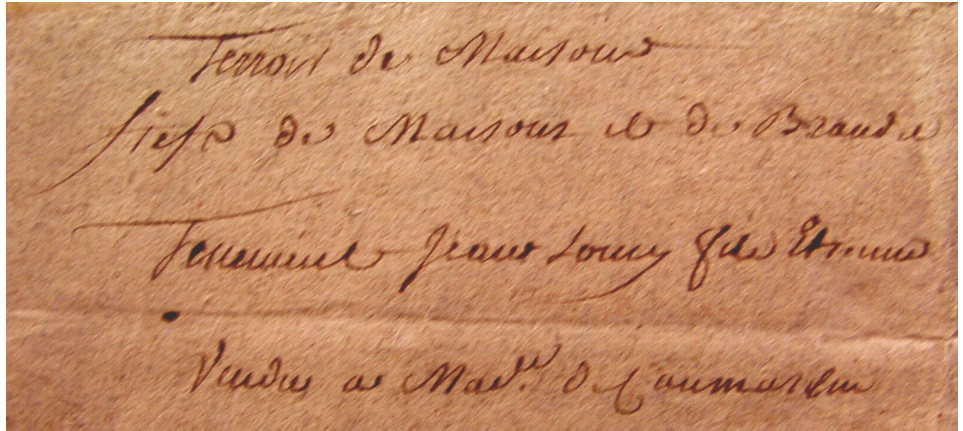 Terroir de Maisons
fiefs de Maisons et de Brandi
Tenement Jean Louis fils Etienne
Vendu a Mad.lle de Caumartin